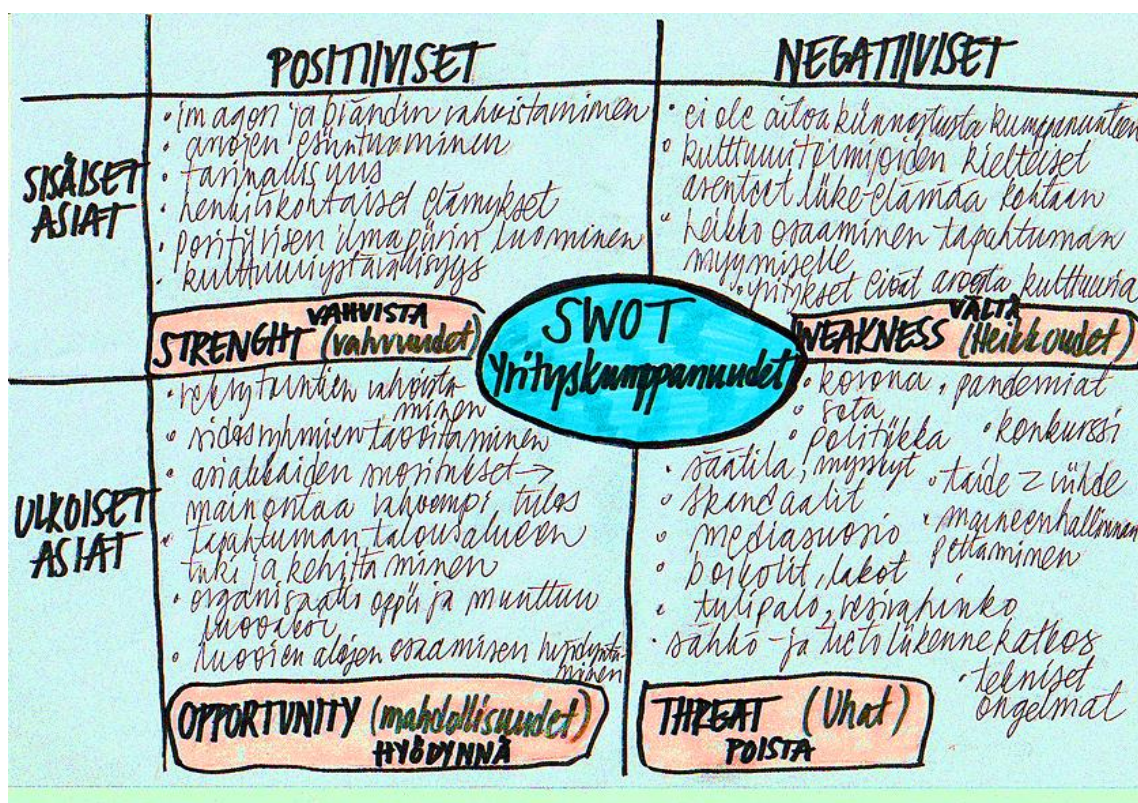 POSITIIVISET
NEGATIIVISET
SISÄISET
ASIAT
• imagon ja brändin vahvistaminen
• arvojen esiintuominen
• tarinallisuus
• henkilökohtaiset elämykset
• positiivisen ilmapiirin luominen
• kulttuuriystävällisyys
VAHVISTA
STRENGHT (vahvuudet)
• ei ole aitoa kiinnostusta kumppanuuteen
• kulttuuritoimijoiden kielteiset
asenteet liike-elämää kohtaan
• heikko osaaminen tapahtuman
myymiselle
• yritykset eivät arvosta kulttuuria
VÄLTÄ
WEAKNESS (Heikkoudet)
SWOT
Yrityskumppanuudet
ULKOISET
ASIAT
• rekrytointien vahvista-
minen
• sidosryhmien tavoittaminen
• asiakkaiden suositukset →
mainontaa vahvempi tulos
• tapahtuman talousalueen
tuki ja kehittäminen
• organisaatio oppii ja muuttuu
luovaksi
• luovien alojen osaamisen hyödyntä-
minen
OPPORTUNITY (mahdollisuudet)
HYÖDYNNÄ
• korona, pandemiat
• sota
• politiikka
• konkurssi
• säätila, myrskyt
• taide = viihde
• skandaalit
• maineenhallinnan
pettäminen
• mediasuosio
• boikotit, lakot
• tulipalo, vesivahinko
• sähkö- ja tietoliikennekatkos
• tekniset
ongelmat
THREAT (Uhat)
POISTA